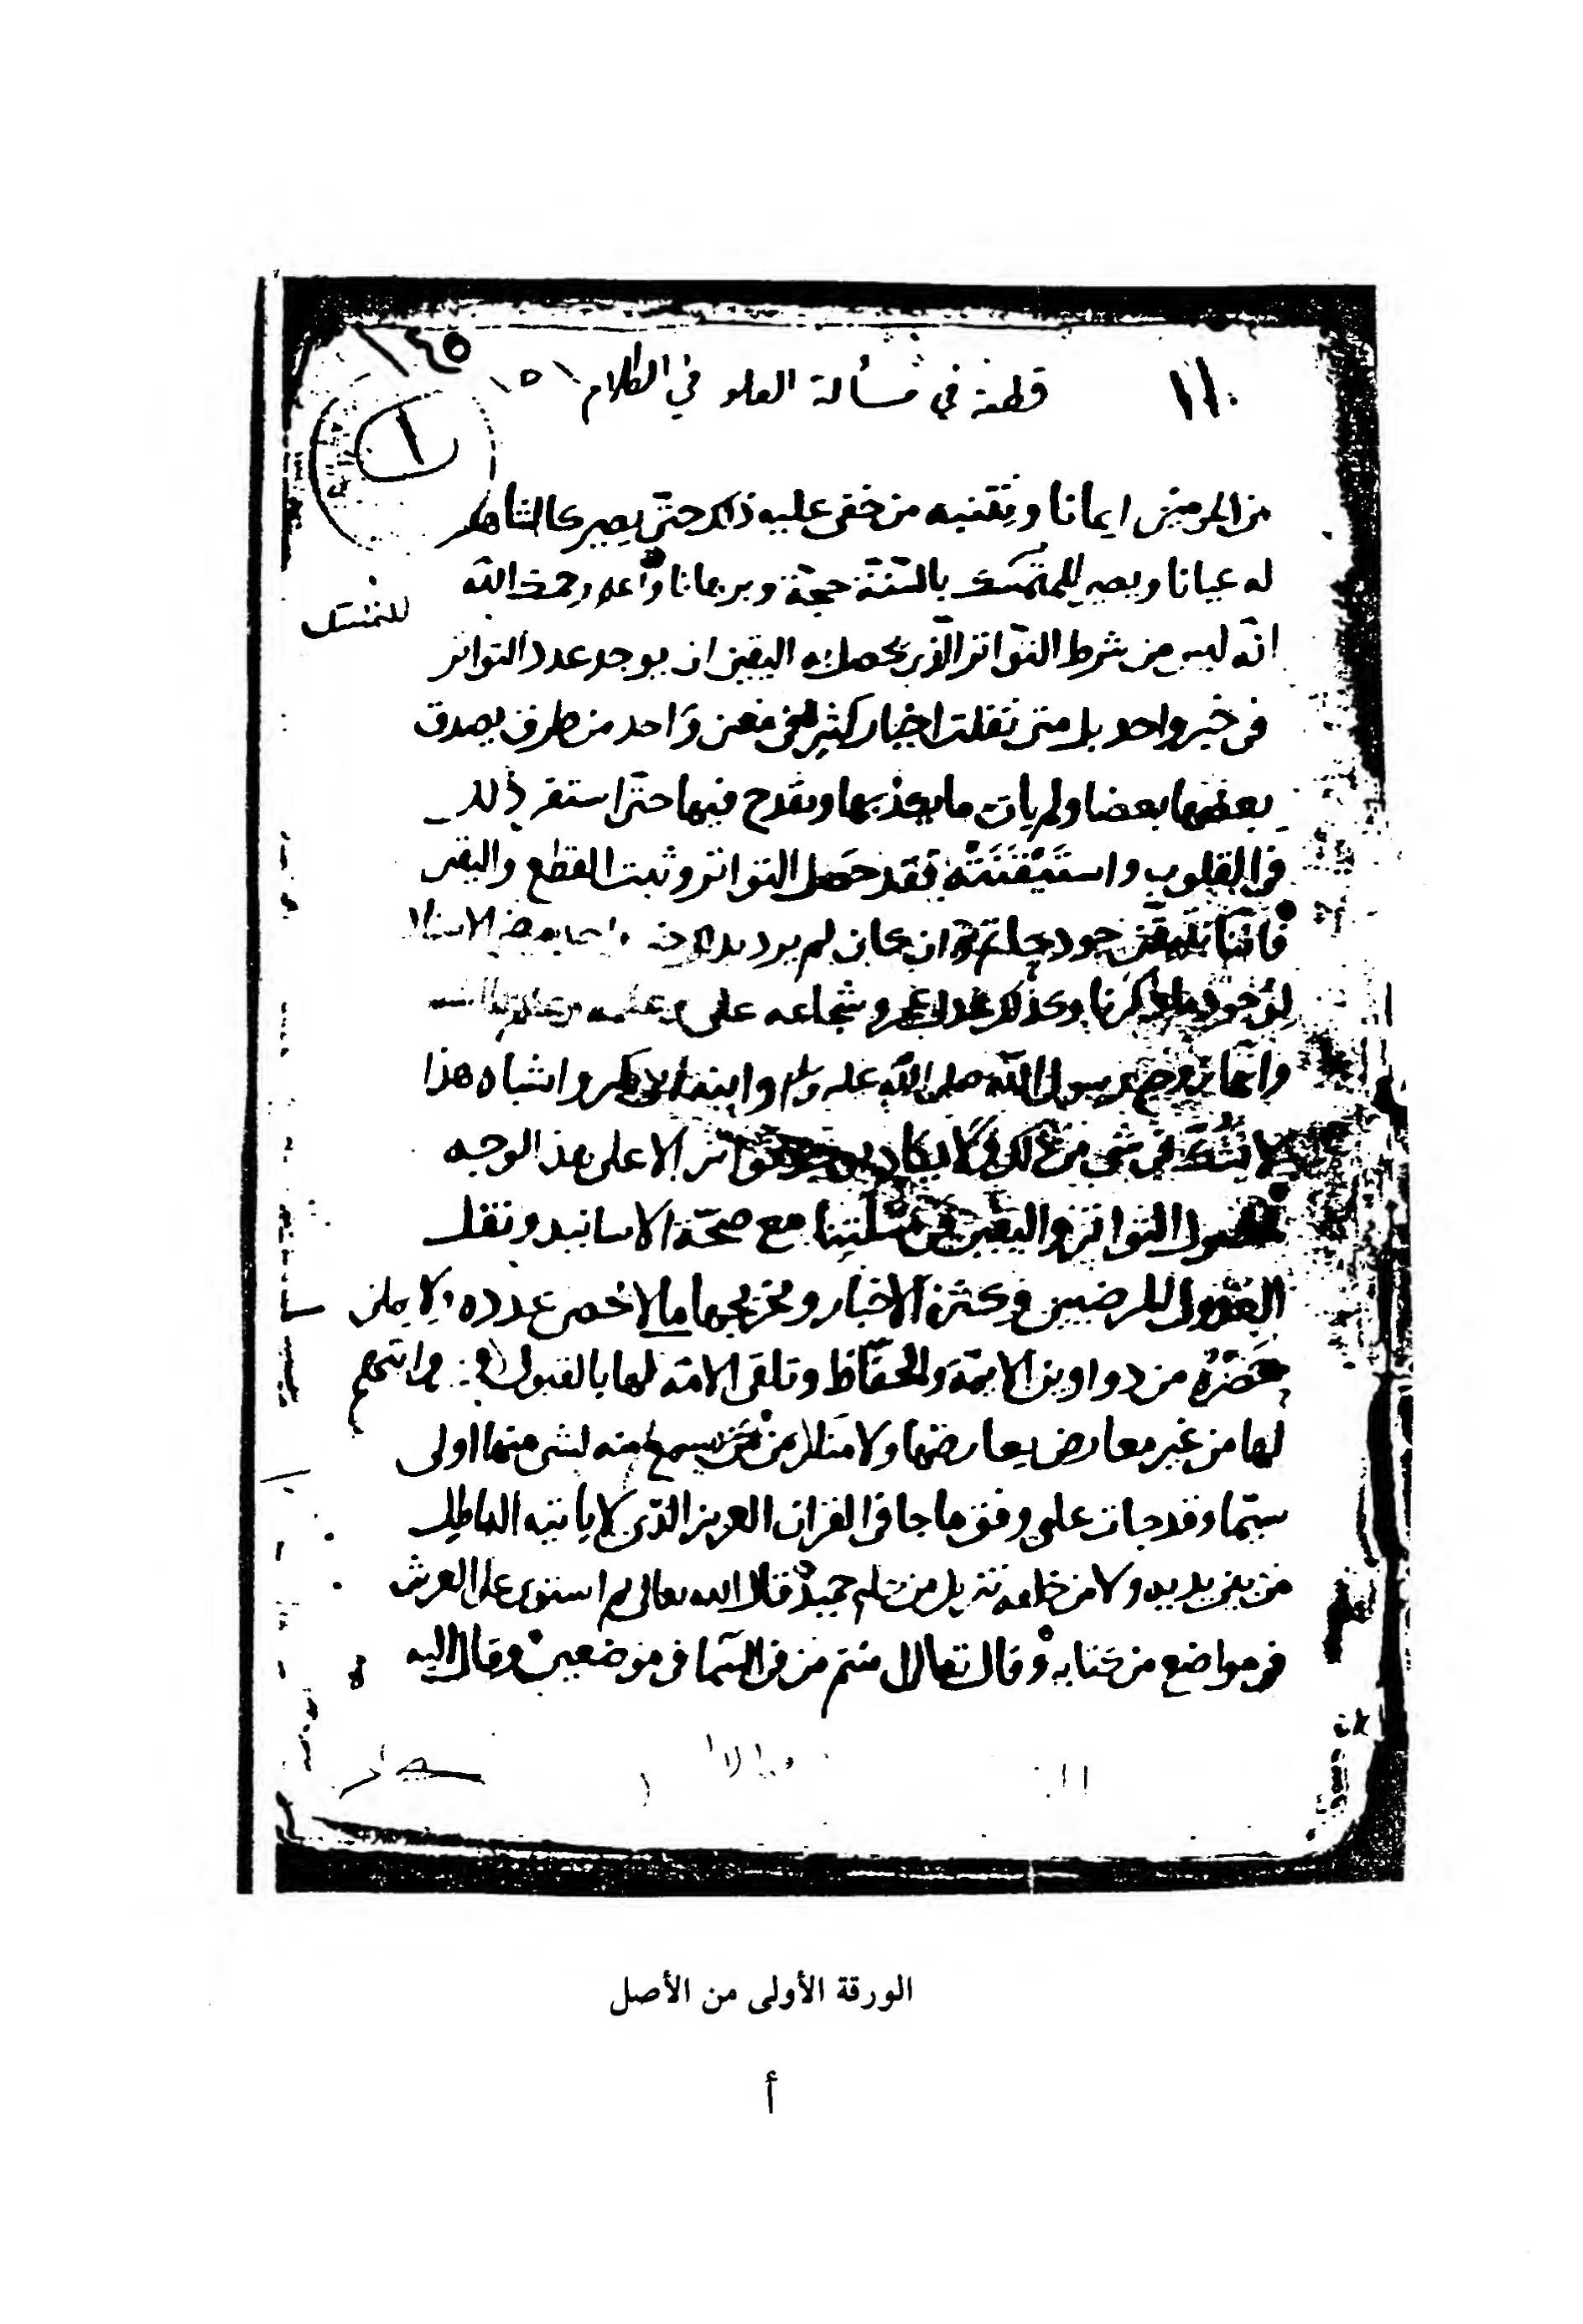 ١١٠ قطعة في مسألة العلو في الكلام ١٥١
١
من المومنين ايمانا وتنبيه من خفى عليه ذلك حتى يصير كالشاهد
له عيانا ويصير للمتمسك بالسنة حجة وبرهانا واعلم رحمك الله
للمتمسك
انه ليس من شرط التواتر الذى يحصل به اليقين ان يوجد عدد التواتر
فى خبر واحد بل متى نقلت اخبار كثيرة فى معنى واحد من طرق يصدق
بعضها بعضا ولم يات ما يكذبها ويقدح فيها حتى استقر ذلك
فى القلوب واستيقنته فقد حصل التواتر وثبت القطع واليقين
فاننا نتيقن جود حاتم وان كان لم يرد بذلك خبر واحد
لوجود ما ذكرنا وكذلك عدل عمر وشجاعه على
وانما زوج رسول الله صلى الله عليه وسلم وابنه ابى بكر واشباه هذا
لا يشك في شى من ذلك ولا يكاد يوجد تواتر الا على هذا الوجه
فحصول التواتر واليقين في مسئلتنا مع صحة الاسانيد ونقل
العدول المرضيين وكثرة الاخبار وتخريجها ما لا يحصى عدده ولا يمكن
حصره من دواوين الايمة والحفاظ وتلقى الامة لها بالقبول وروايتهم
لها من غير معارض يعارضها ولا منكر من يسمع منه لشى منها اولى
سيما وقد جات على وفق ما جا فى القران العزيز الذى لا ياتيه الباطل
من بين يديه ولا من خلفه تنزيل من حكيم حميد قال الله تعالى ثم استوى على العرش
فى مواضع من كتابه وقال تعالى امنتم من فى السما فى موضعين وقال اليه
الورقة الأولى من الأصل
أ